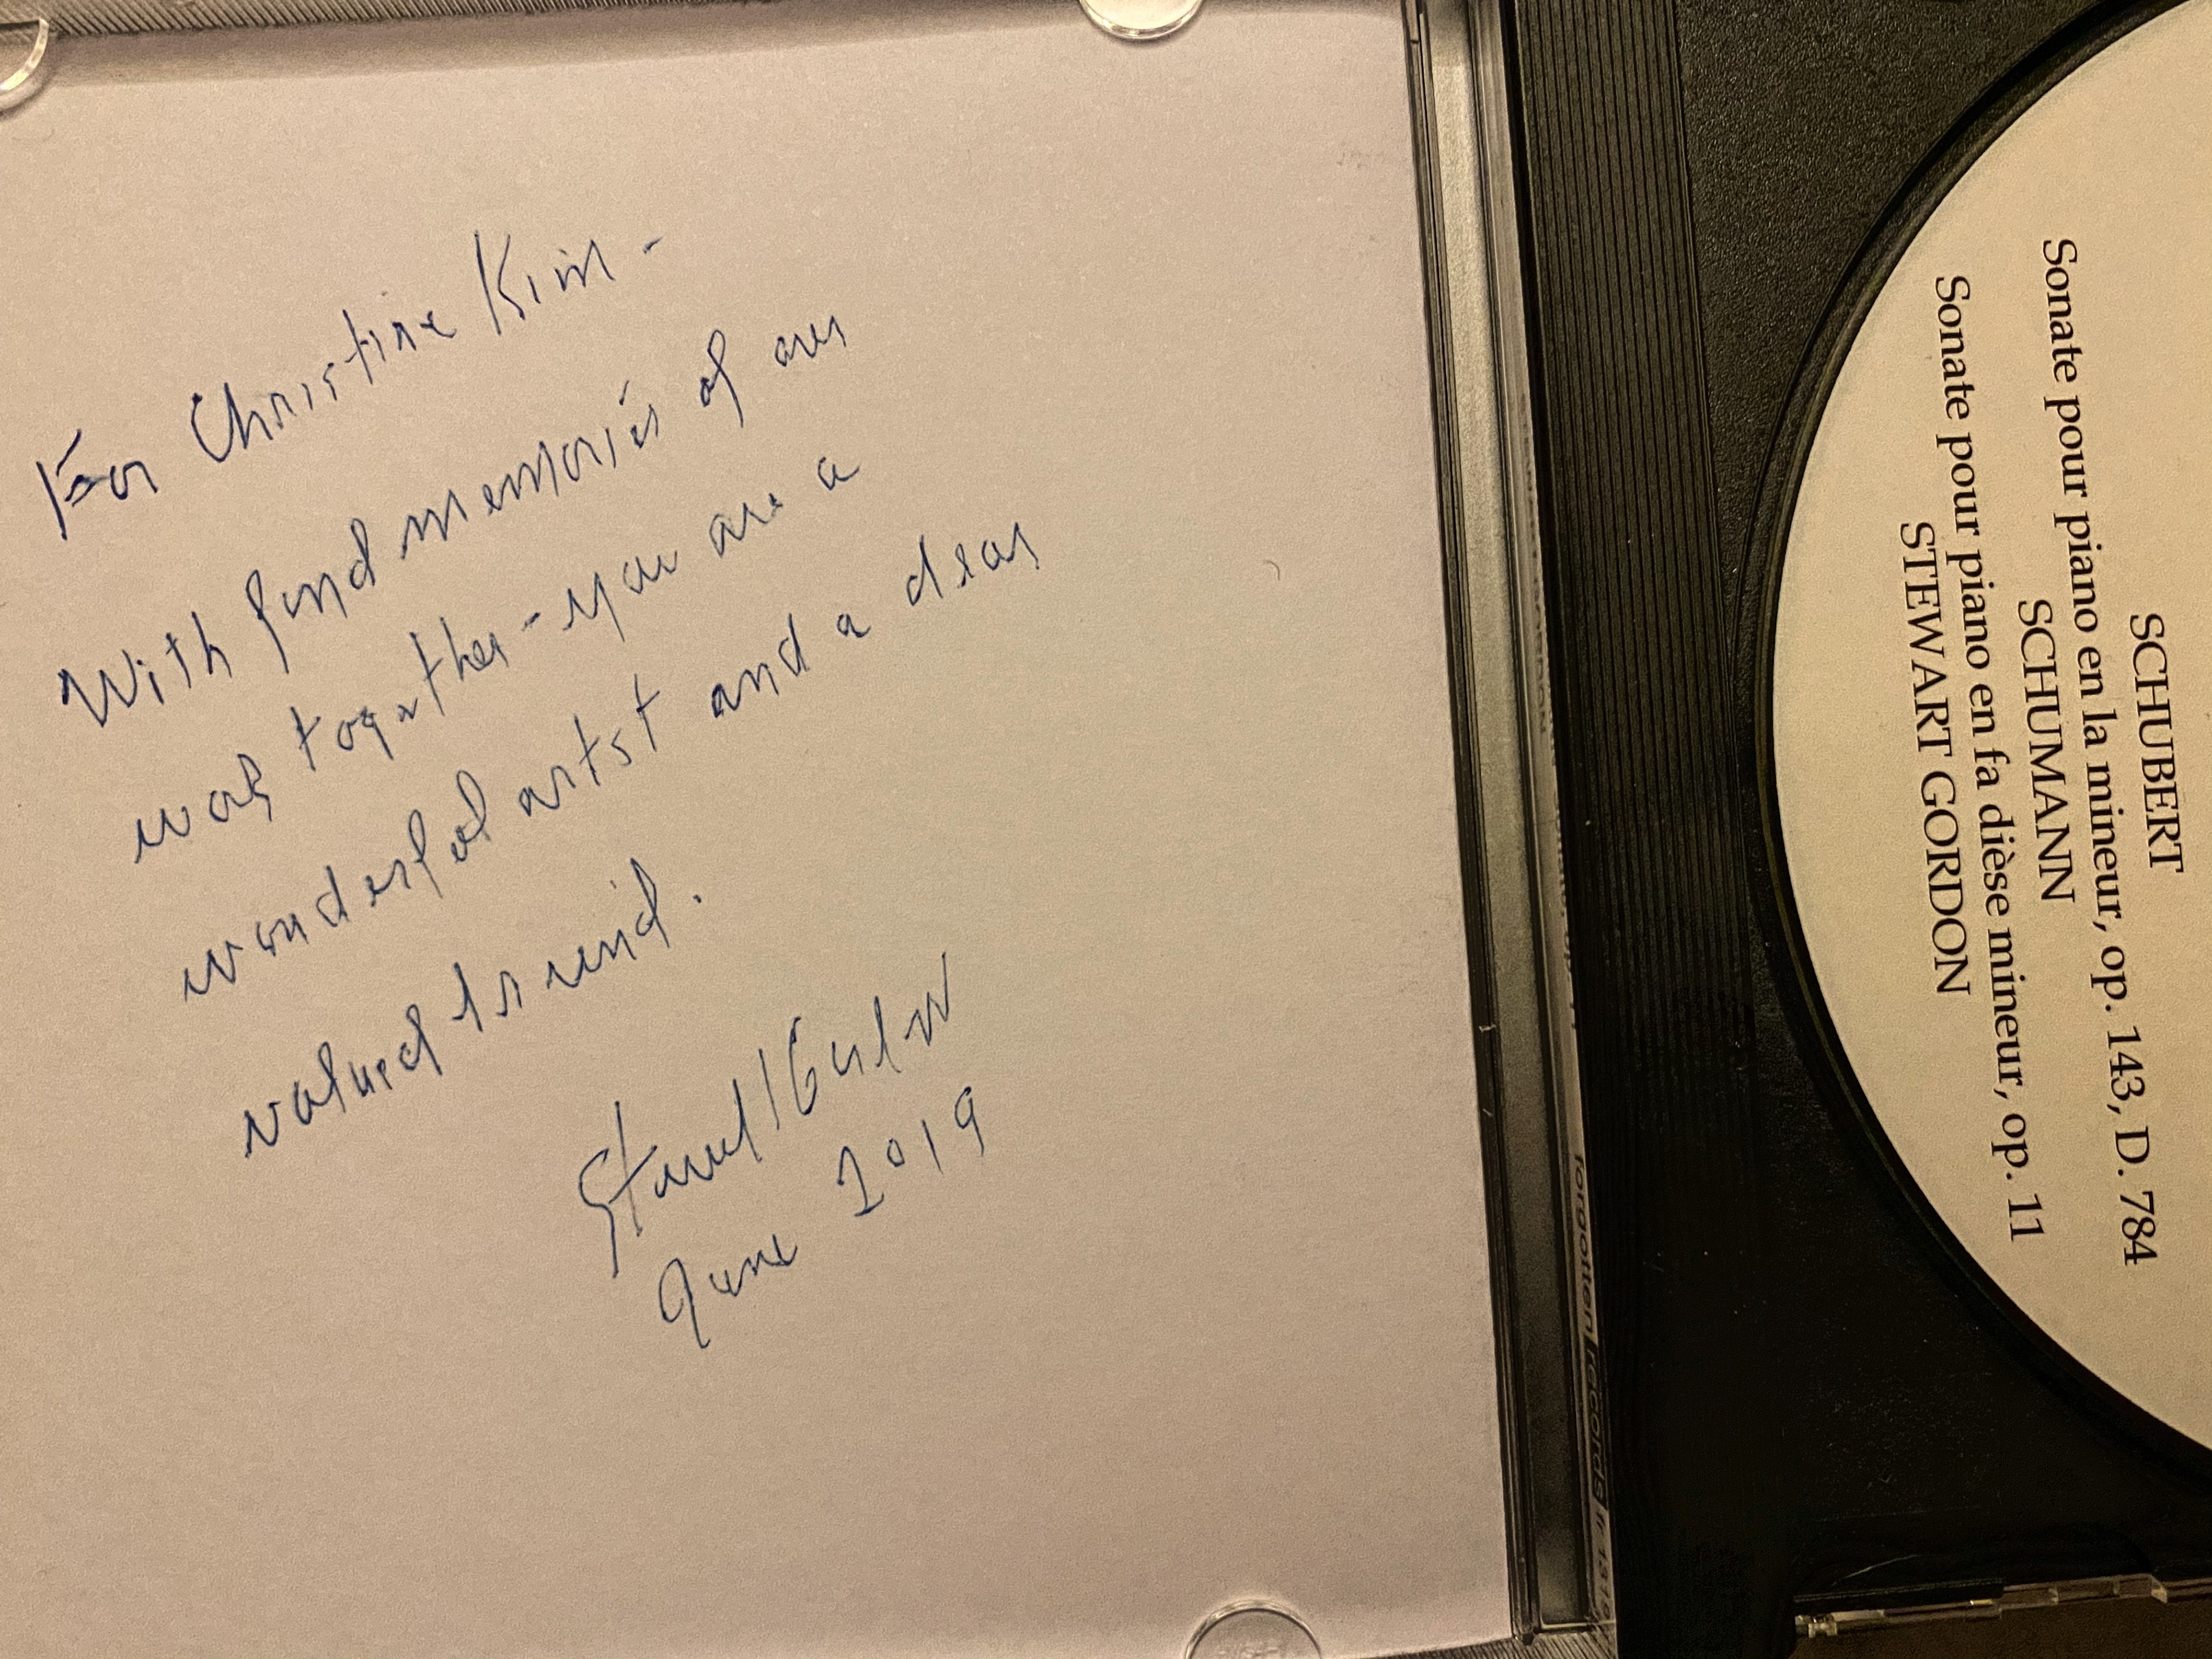 For Christine Kim -
With fond memories of our
work together - you are a
wonderful artst and a dear
valued friend.
Stewart Gordon
June 2019
SCHUBERT
Sonate pour piano en la mineur, op. 143, D. 784
SCHUMANN
Sonate pour piano en fa dièse mineur, op. 11
STEWART GORDON
forgotten records fr 1319